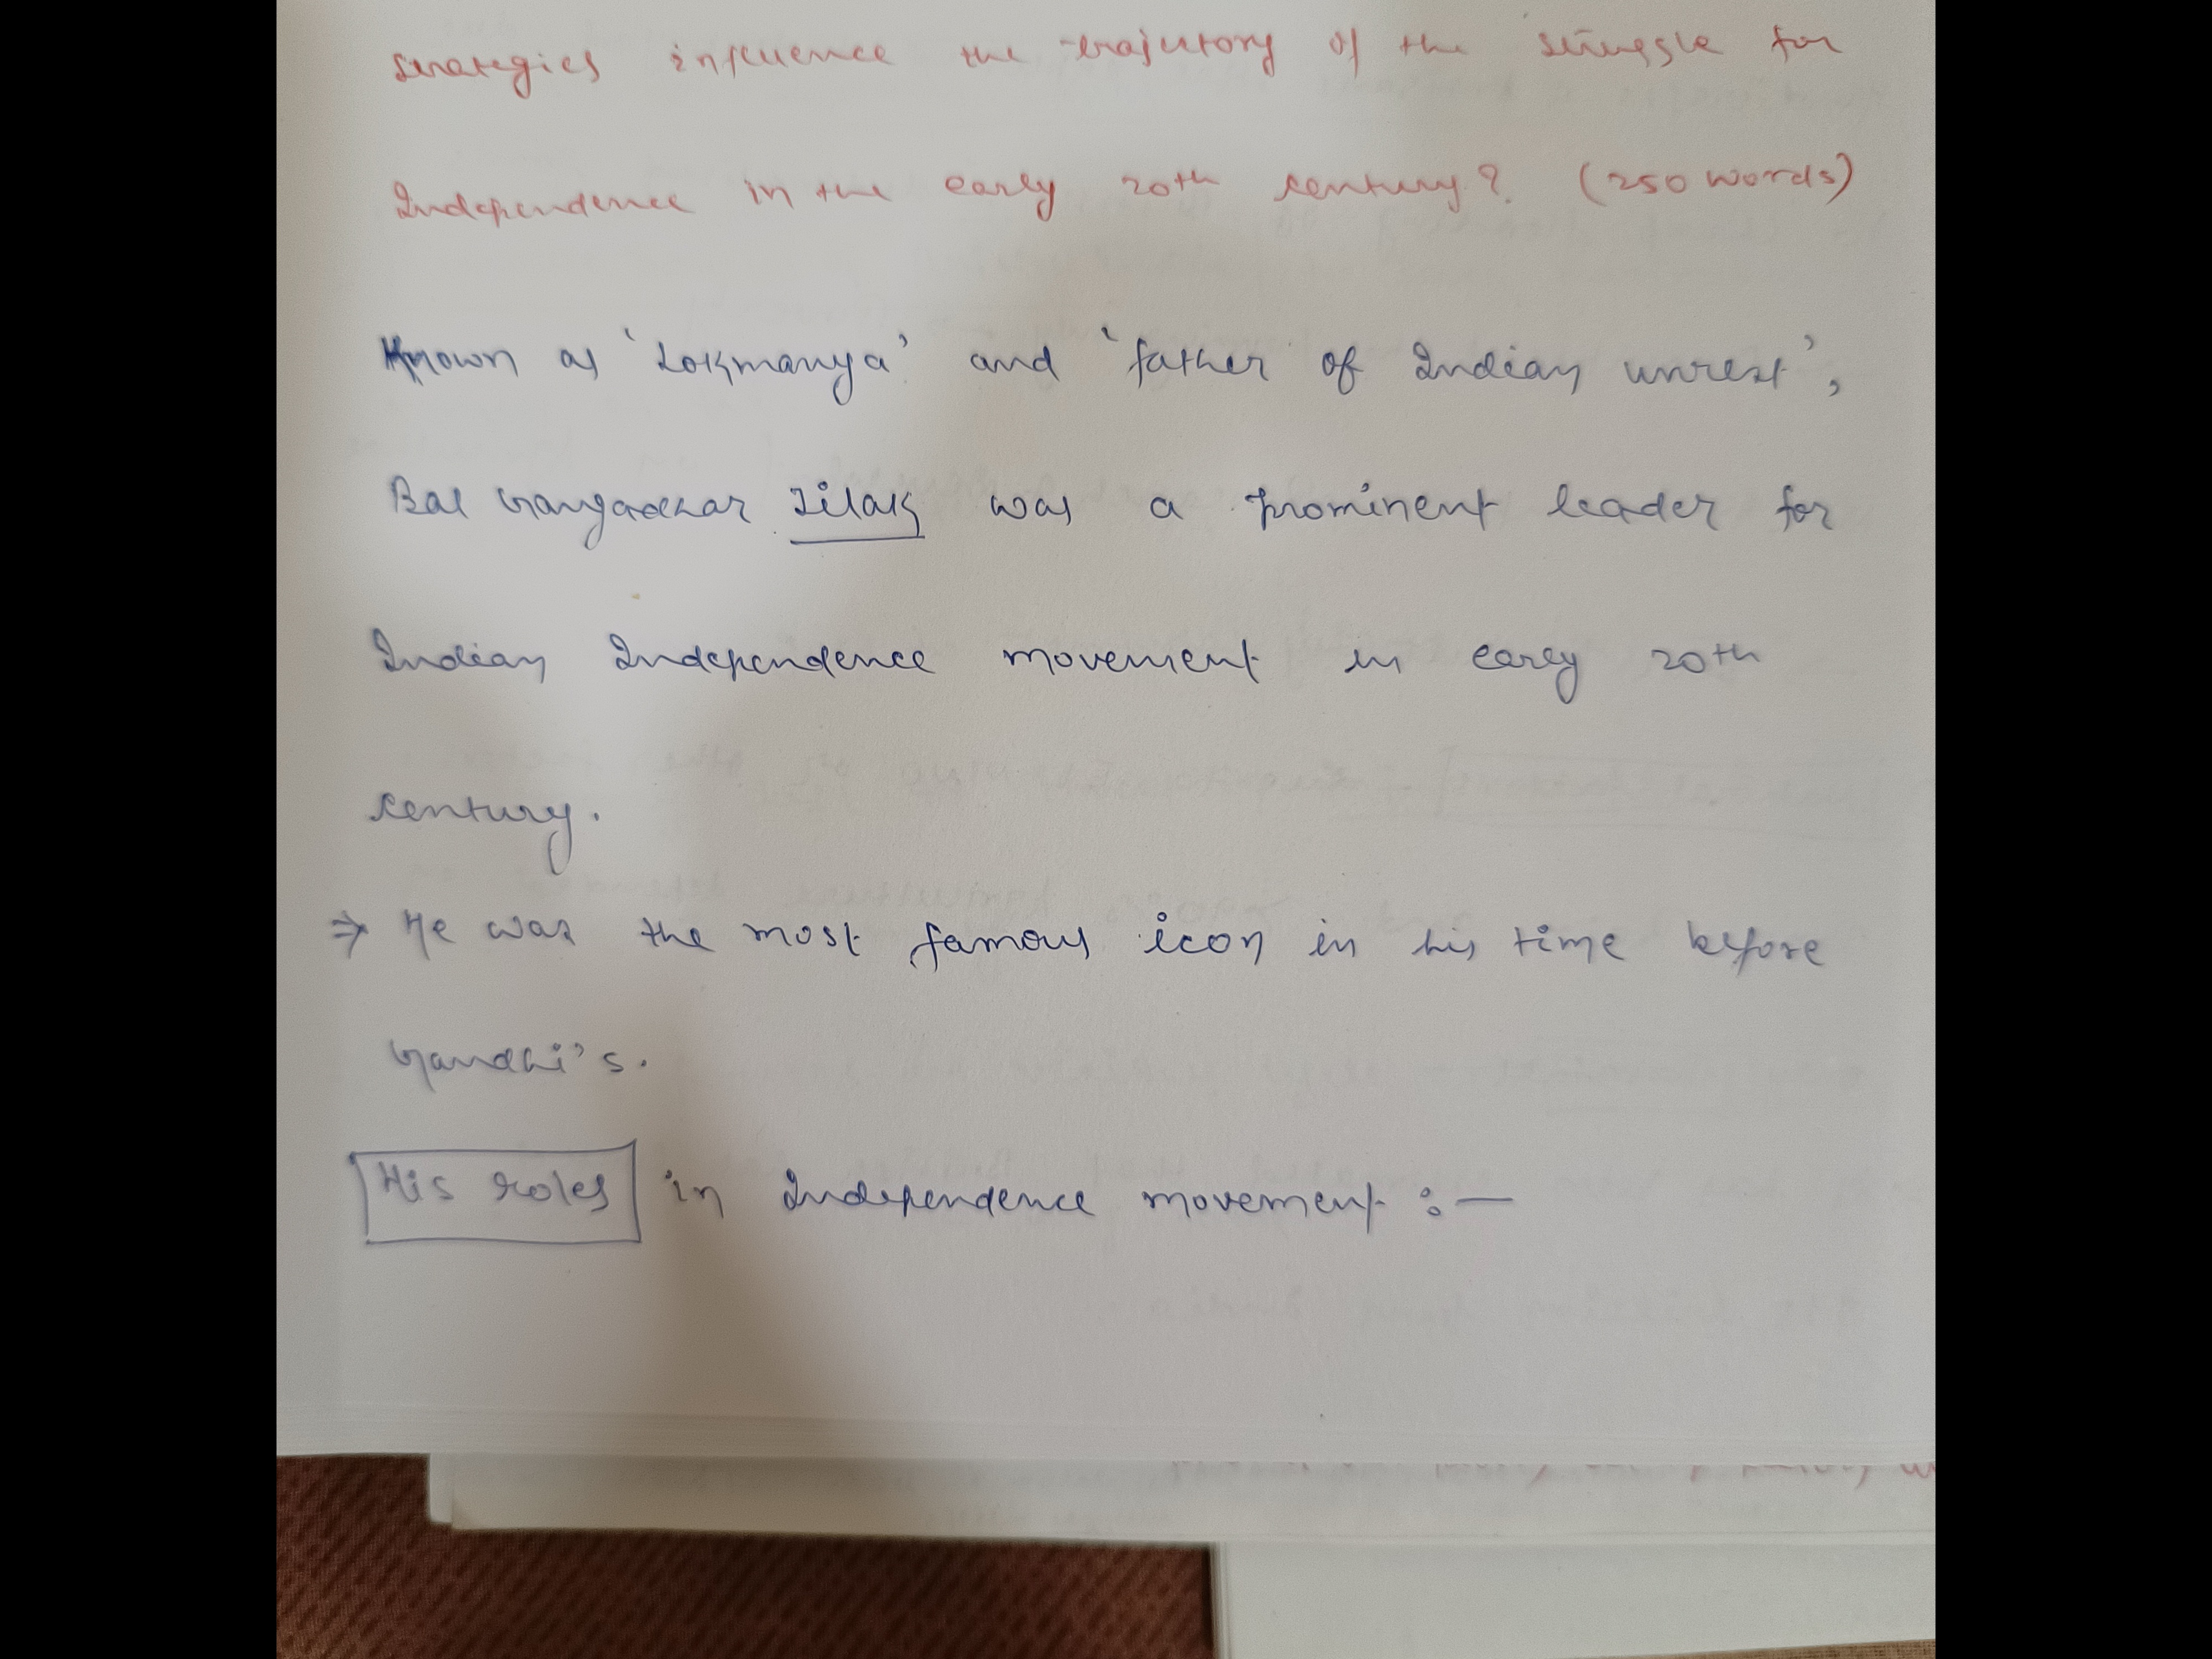 strategies influence the trajectory of the struggle for
Independence in the early 20th century? (250 words)
Known as 'Lokmanya' and 'father of Indian unrest',
Bal Gangadhar Tilak was a prominent leader for
Indian Independence movement in early 20th
century.
⇒ He was the most famous icon in his time before
Gandhi's.
His roles in Independence movement :—